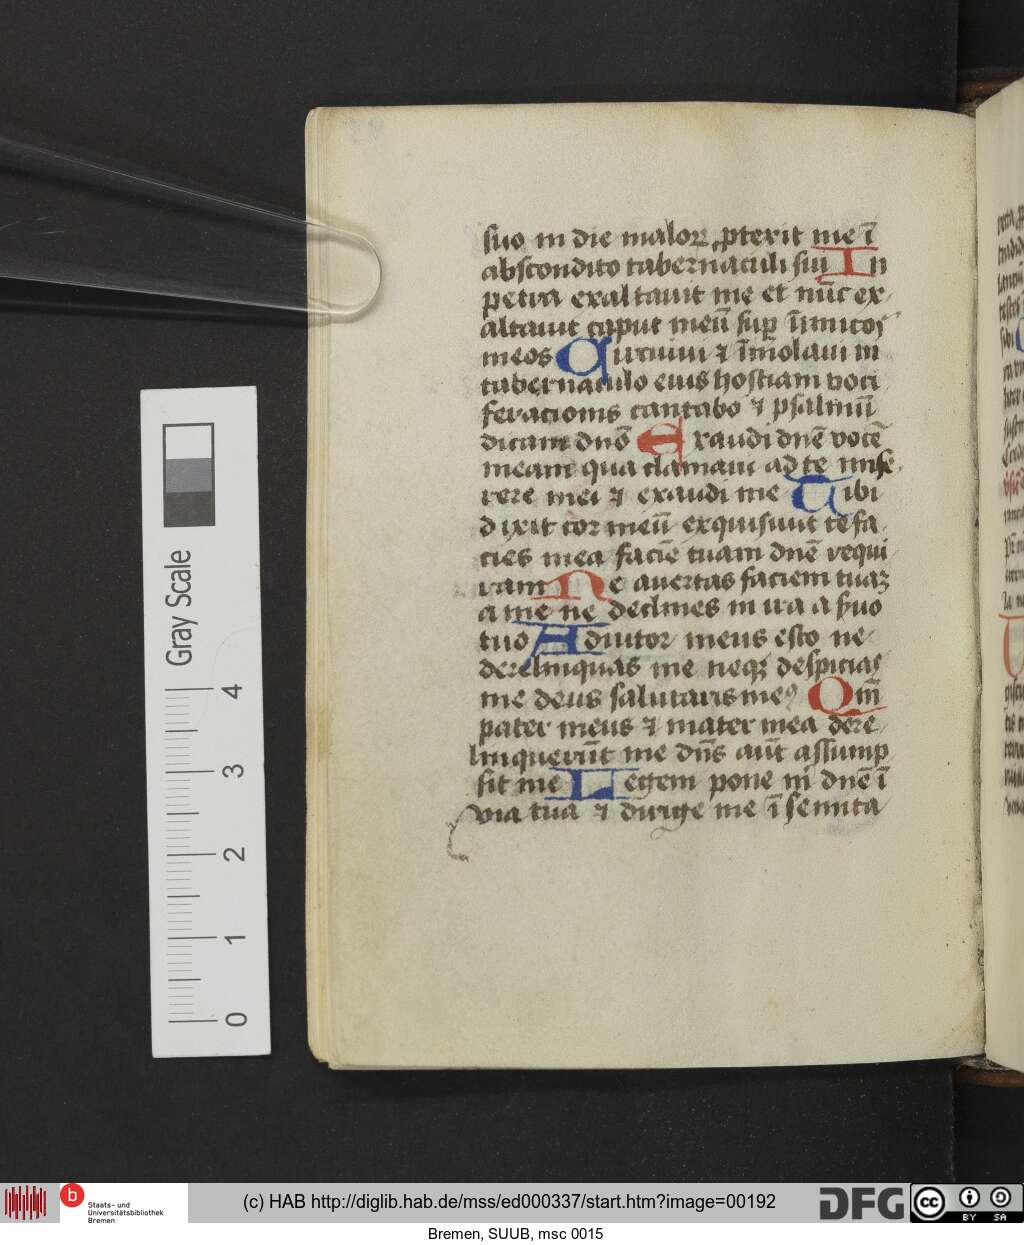 suo in die maloꝝ ꝓterit me ī
abscondito tabernaculi sui In
petra exaltauit me et nūc ex
altauit caput meū sup īimicos
meos Circuiui ⁊ īmolaui in
tabernaculo eius hostiam voci
feracionis cantabo ⁊ psalmū
dicam dnō Exaudi dnē vocē
meam qua clamaui ad te mise
rere mei ⁊ exaudi me Tibi
dixit cor meū exquisiuit te fa
cies mea faciē tuam dnē requi
ram Ne auertas faciem tuaꝫ
a me ne declines in ira a seruo
tuo Adiutor meus esto ne
derelinquas me neqꝫ despicias
me deus salutaris meꝰ Qm̄
pater meus ⁊ mater mea dere
linquerūt me dn̄s aūt assump
sit me Legem pone m̄ dnē ī
via tua ⁊ dirige me ī semita
Gray Scale
4
3
2
1
0
b
Staats- und
Universitätsbibliothek
Bremen
(c) HAB http://diglib.hab.de/mss/ed000337/start.htm?image=00192
DFG
cc
BY SA
Bremen, SUUB, msc 0015